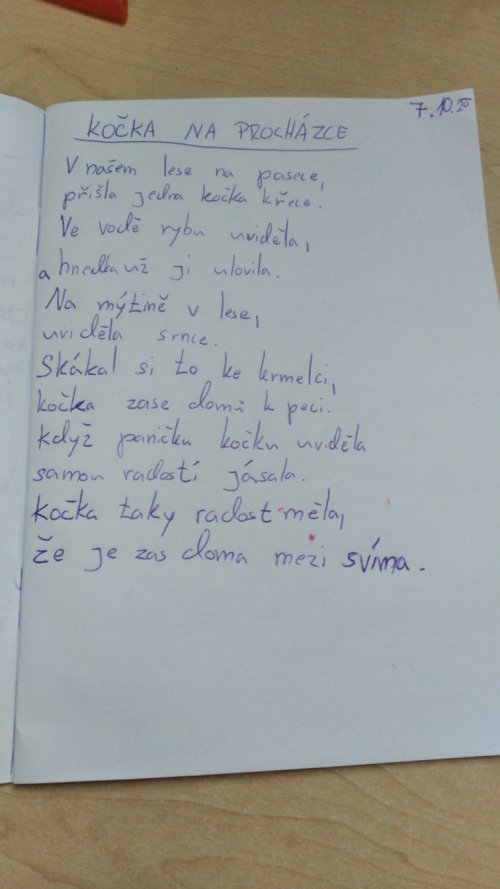 7.10.20
KOČKA NA PROCHÁZCE
V našem lese na pasece,
přišla jedna kočka k řece.
Ve vodě rybu uviděla,
a hnedka už ji ulovila.
Na mýtině v lese,
uviděla srnce.
Skákal si to ke krmelci,
kočka zase domů k peci.
Když panička kočku uviděla
samou radostí jásala.
Kočka taky radost měla,
že je zas doma mezi svíma.